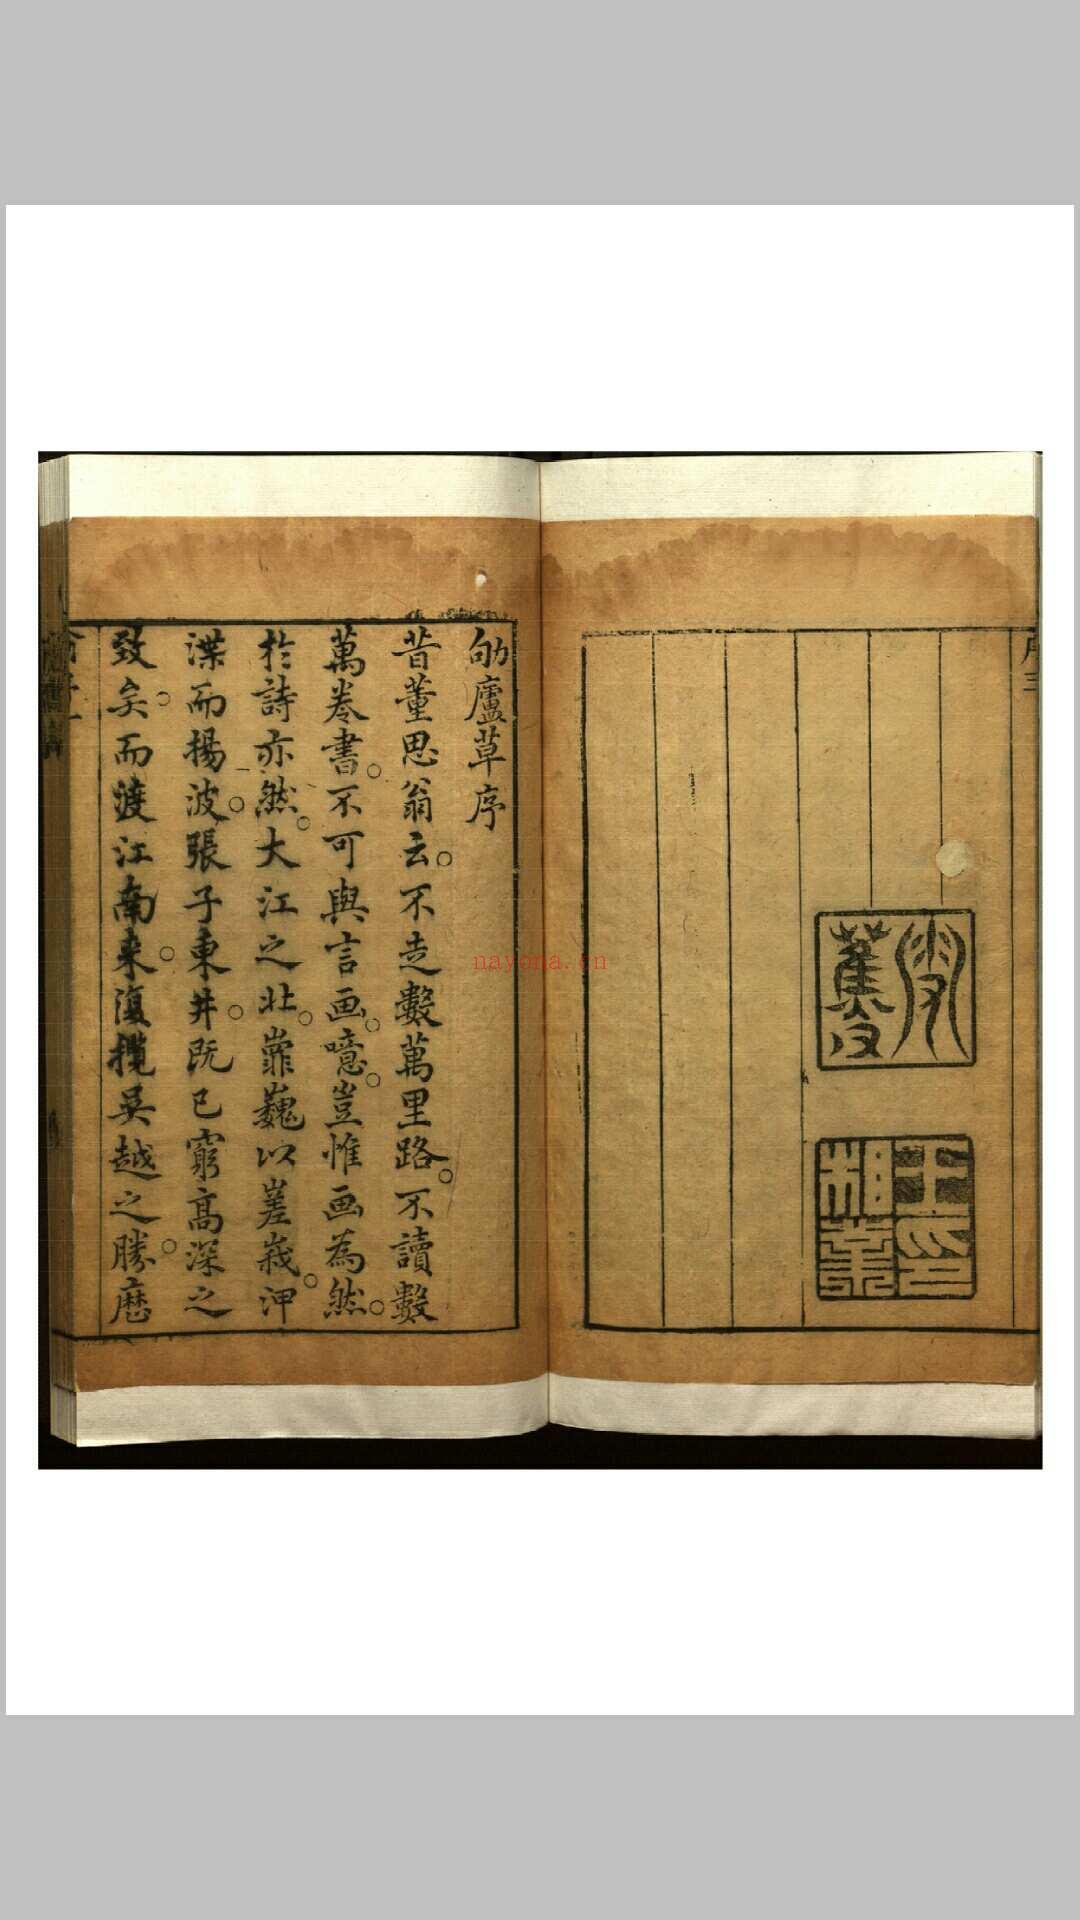 序三
王相業印
劬廬草序
昔董思翁云。不走數萬里路。不讀數
萬卷書。不可與言画。噫。豈惟画為然。
於詩亦然。大江之北。巃巍以嵳峩。渒
渫而揚波。張子東井。既已窮高深之
致矣。而渡江南来。復攬吳越之勝。歷
nayona.cn